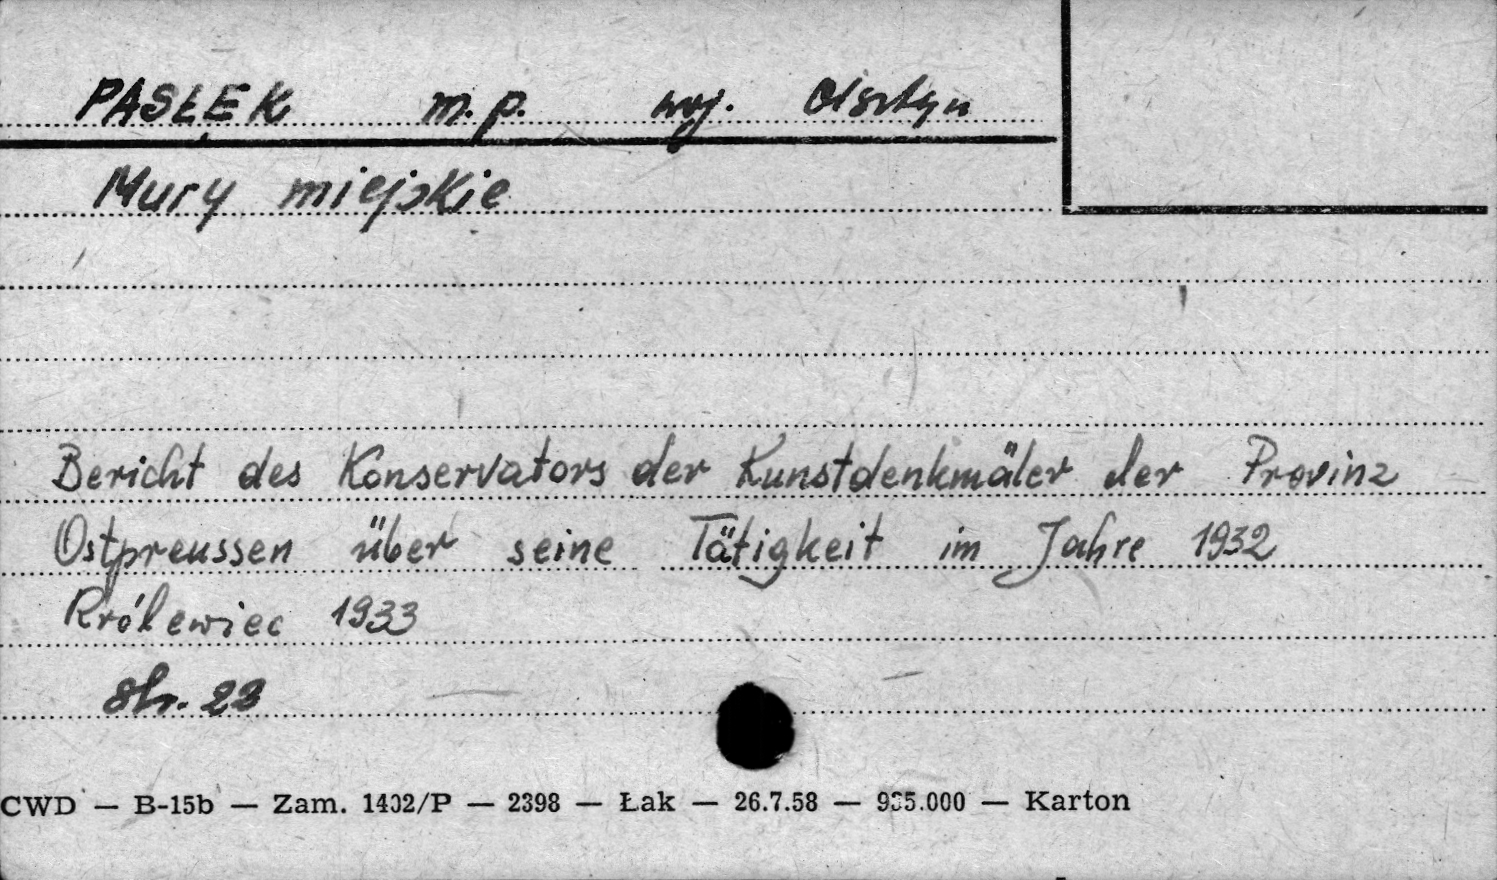 PASŁĘK m. p. woj. Olsztyn
Mury miejskie
Bericht des Konservators der Kunstdenkmäler der Provinz
Ostpreussen über seine Tätigkeit im Jahre 1932
Królewiec 1933
Str. 23
CWD — B-15b — Zam. 1402/P — 2398 — Łak — 26.7.58 — 935.000 — Karton